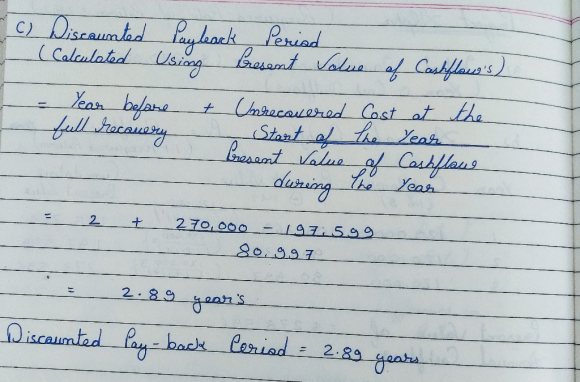 c) Discounted Payback Period
(Calculated Using Present Value of Cashflow's)
= Year before + Unrecovered Cost at the
full recovery Start of the Year
Present Value of Cashflow
during the Year
= 2 + 270,000 - 197,599
80,997
= 2.89 year's
Discounted Pay-back Period = 2.89 years